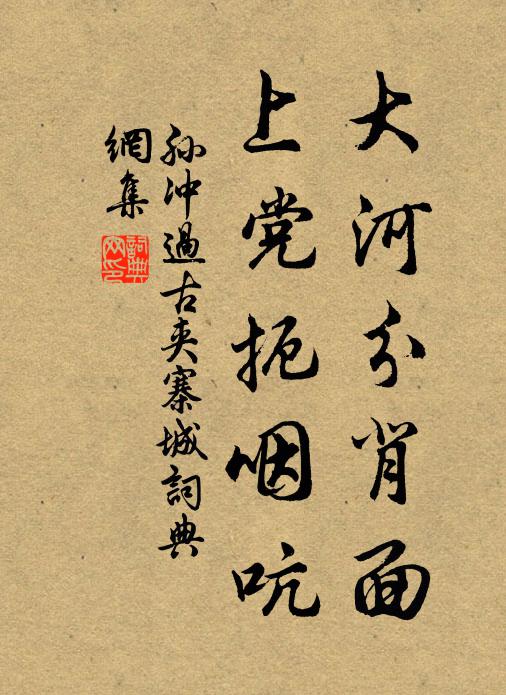 大河分背面
上党扼咽吭
孙冲過古夹寨城詞典
網集
詞典
网印